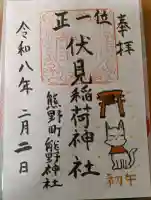 奉拝
正一位
伏見稲荷神社
熊野町熊野神社
令和八年二月二日
初午